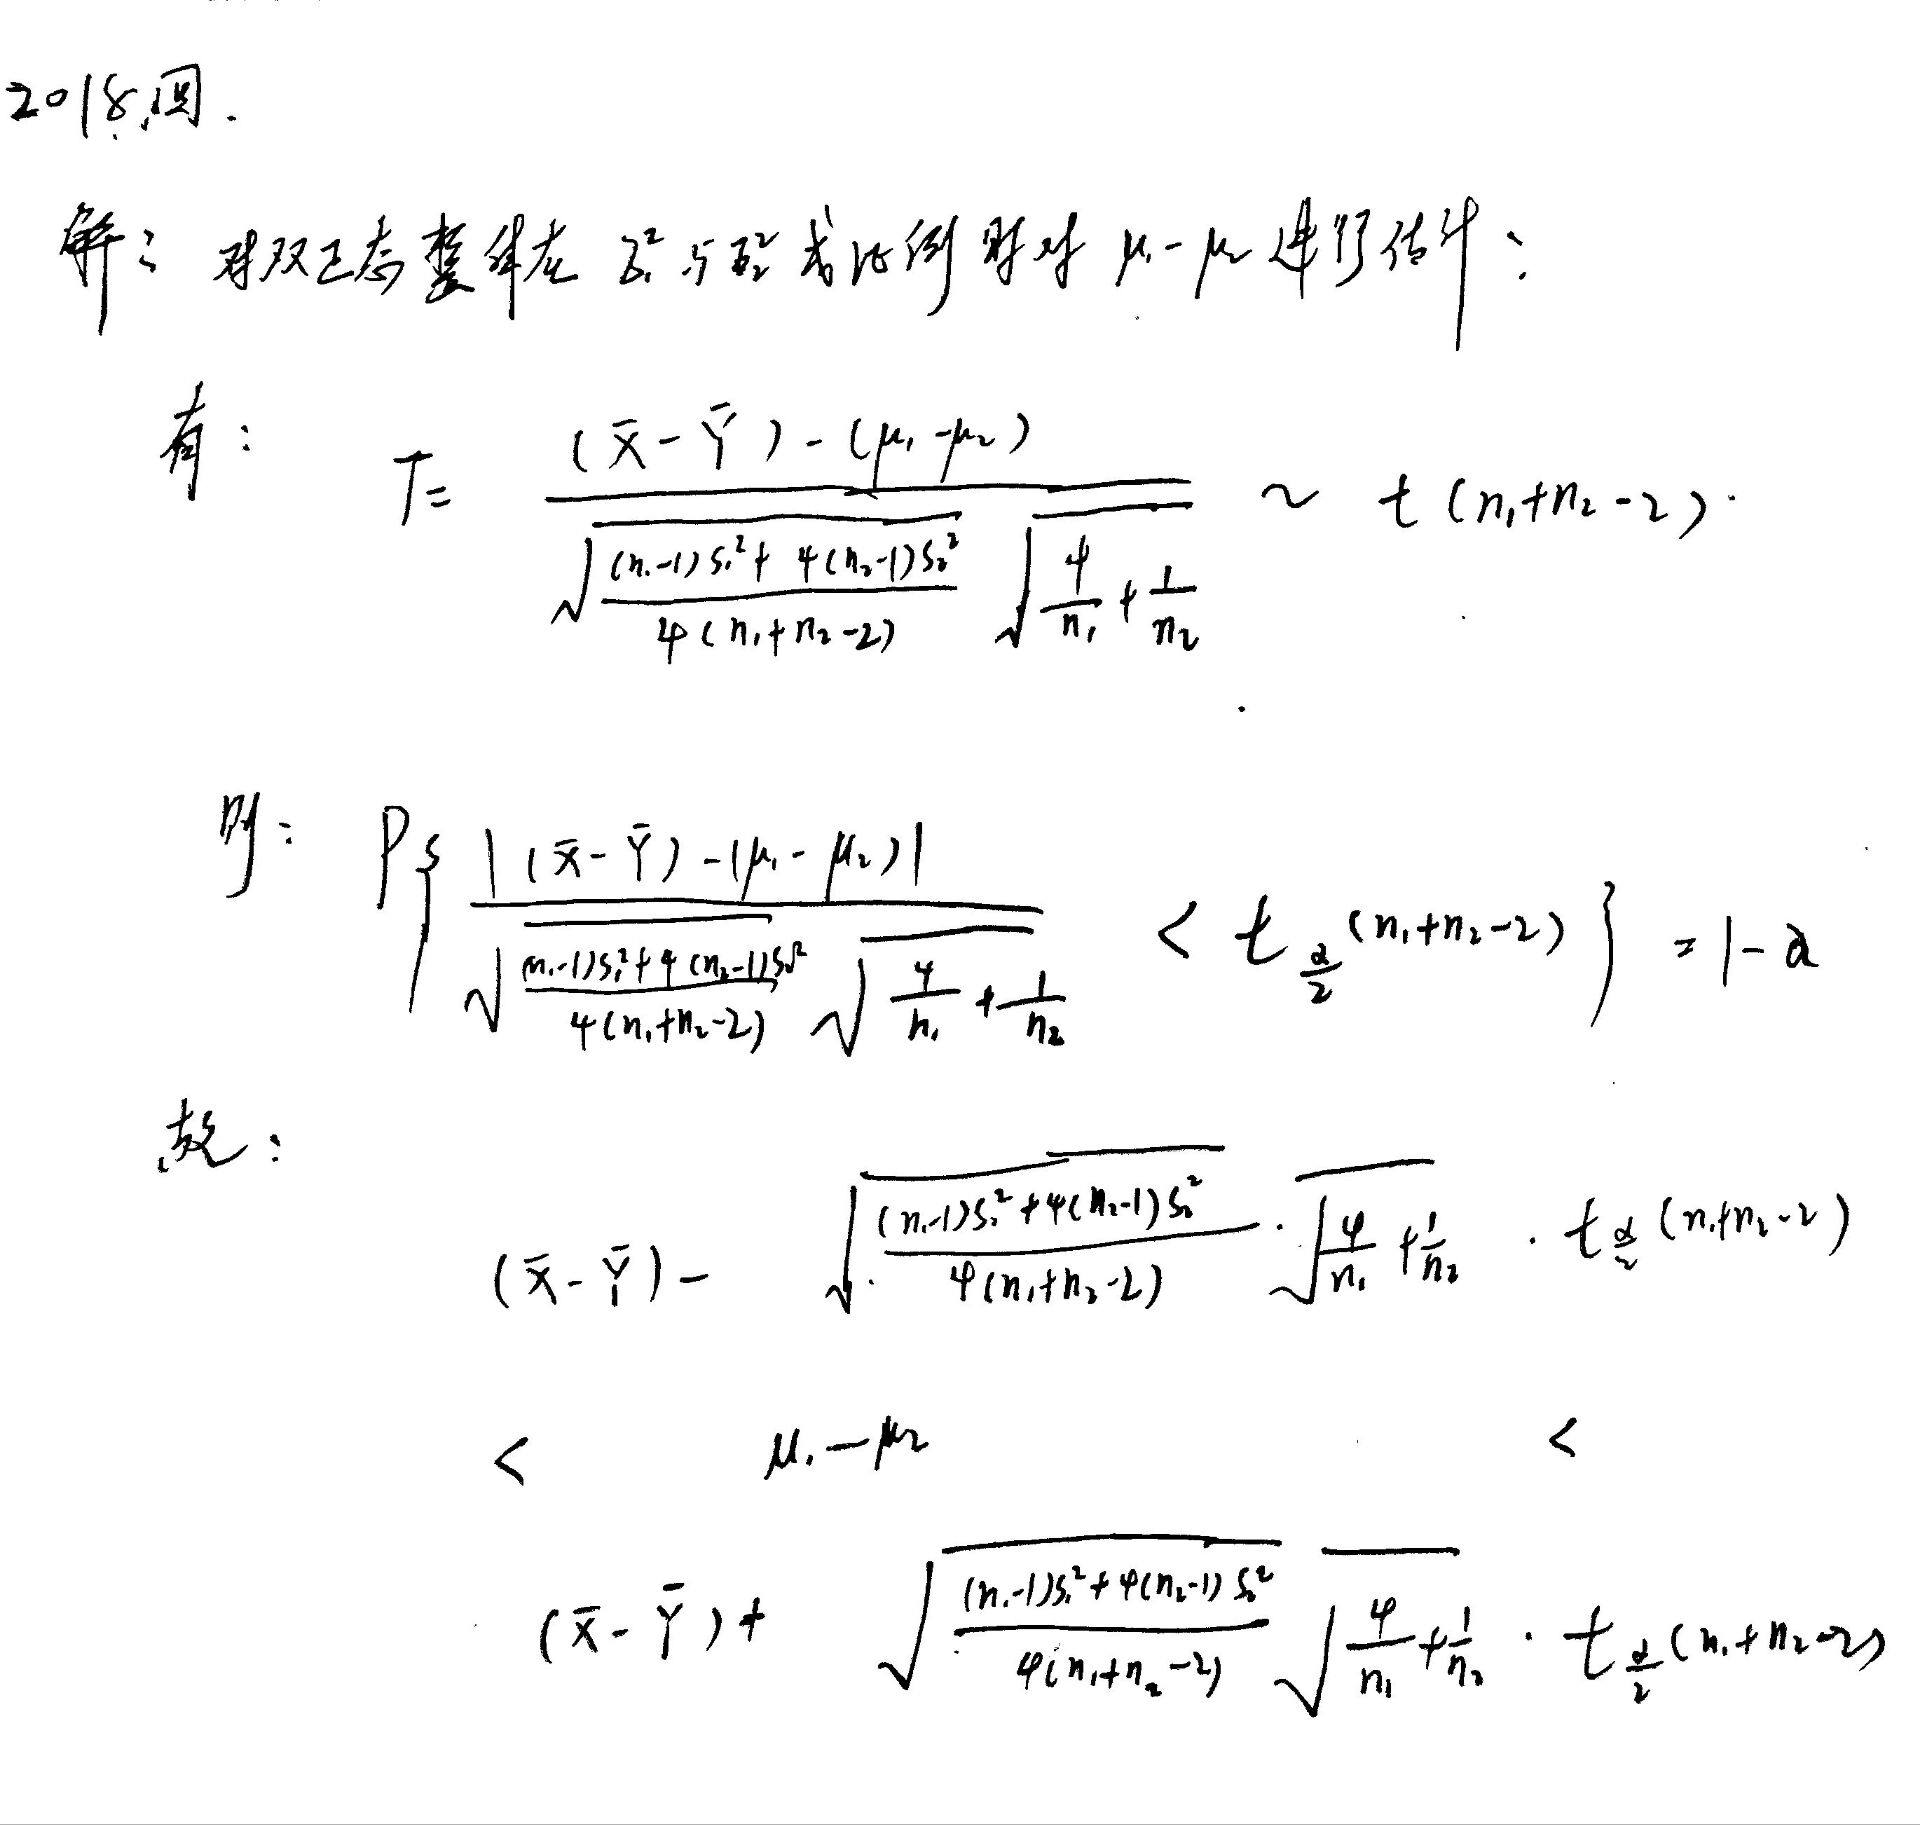 2018.四.
解: 对双正态整体在 σ₁² 与 σ₂² 成比例时对 μ₁-μ₂ 进行估计:
有: T= \frac{(\bar{X}-\bar{Y})-(μ₁-μ₂)}{\sqrt{\frac{(n₁-1)S₁²+4(n₂-1)S₂²}{4(n₁+n₂-2)}}\sqrt{\frac{4}{n₁}+\frac{1}{n₂}}} ~ t(n₁+n₂-2).
则: P{\frac{|(\bar{X}-\bar{Y})-(μ₁-μ₂)|}{\sqrt{\frac{(n₁-1)S₁²+4(n₂-1)S₂²}{4(n₁+n₂-2)}}\sqrt{\frac{4}{n₁}+\frac{1}{n₂}}} < t_{\frac{α}{2}}(n₁+n₂-2)} = 1-α
故:
(\bar{X}-\bar{Y})- \sqrt{\frac{(n₁-1)S₁²+4(n₂-1)S₂²}{4(n₁+n₂-2)}}·\sqrt{\frac{4}{n₁}+\frac{1}{n₂}} · t_{\frac{α}{2}}(n₁+n₂-2)
< μ₁-μ₂ <
(\bar{X}-\bar{Y})+ \sqrt{\frac{(n₁-1)S₁²+4(n₂-1)S₂²}{4(n₁+n₂-2)}}\sqrt{\frac{4}{n₁}+\frac{1}{n₂}} · t_{\frac{α}{2}}(n₁+n₂-2)